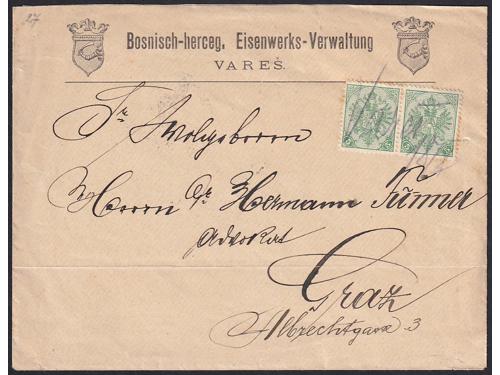 27
Bosnisch-herceg. Eisenwerks-Verwaltung
VAREŠ.
Sr Wolgeborren
Herrn Dr Hermann Türner
Advokat
Graz
Albrechtgasse 3